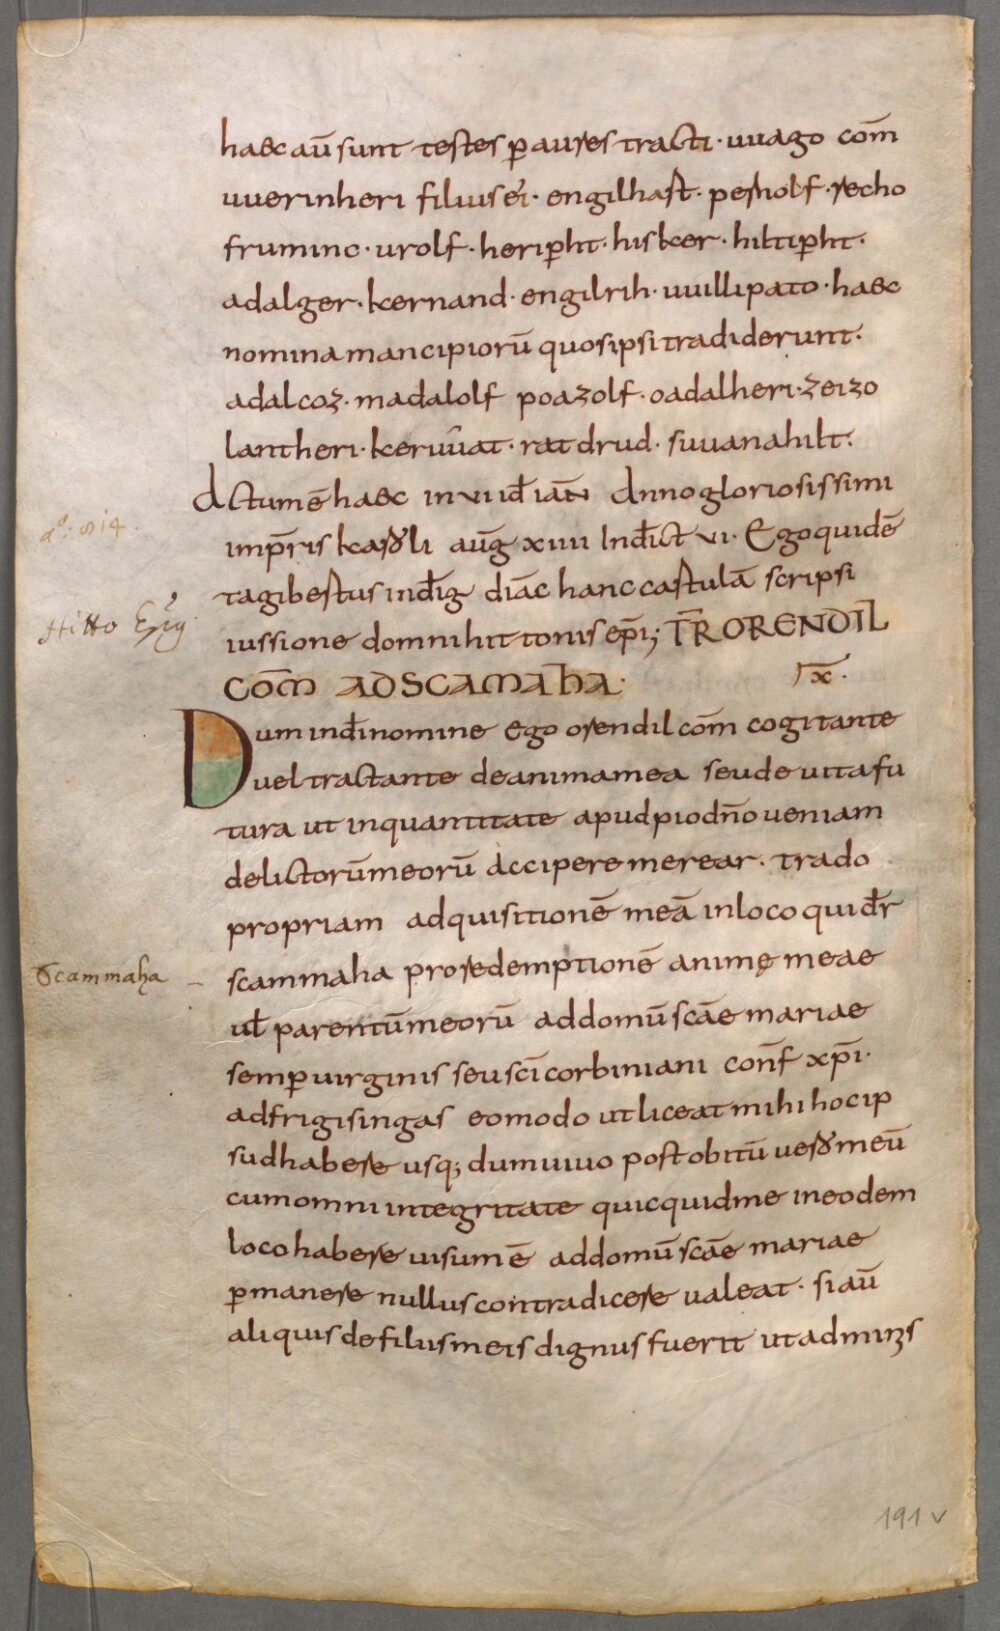 haec aū sunt testes p̄ aures tracti · uuago com̄
uuerinheri filius ei · engilhast · pernolf · recho
fruminc · urolf · herip̄ht · hisker · hiltip̄ht ·
adalger · kernand · engilrih · uuillipato · haec
nomina mancipiorū quos ipsi tradiderunt ·
adalcoz · madalolf poazolf · oadalheri · zeizo
lantheri · keruūat · rat drud · suuanahilt ·
Actum ē haec in vi id̄ ian̄ Anno gloriosissimi
imp̄ris karoli aūg xiiii Ind̄ict vi · Ego quidē
aᵒ. 814.
tagibertus ind̄ig diāc hanc cartulā scripsi
iussione domni hittonis ep̄i; TR̄ ORENDIL
Hitto Ep̄ꝯ
COM̄ AD SCAMAHA · IX̄ ·
Dum in d̄i nomine ego orendil com̄ cogitante
uel tractante de anima mea seu de uita fu
tura ut in quantitate apud pio dn̄o ueniam
delictorū meorū accipere merear · trado
propriam adquisitionē meā in loco qui d̄r
scammaha pro redemptionē animę meae
Scammaha –
ul̄ parentū meorū ad domū scāe mariae
semp̄ uirginis seu scī corbiniani conf̄ xp̄i ·
ad frigisingas eo modo ut liceat mihi hoc ip
sud habere usq; dum uiuo post obitū uero meū
cum omni integritate quicquid me in eodem
loco habere uisum ē ad domū scāe mariae
p̄manere nullus contradicere ualeat · si aū
aliquis de filiis meis dignus fuerit ut ad minis
191 v